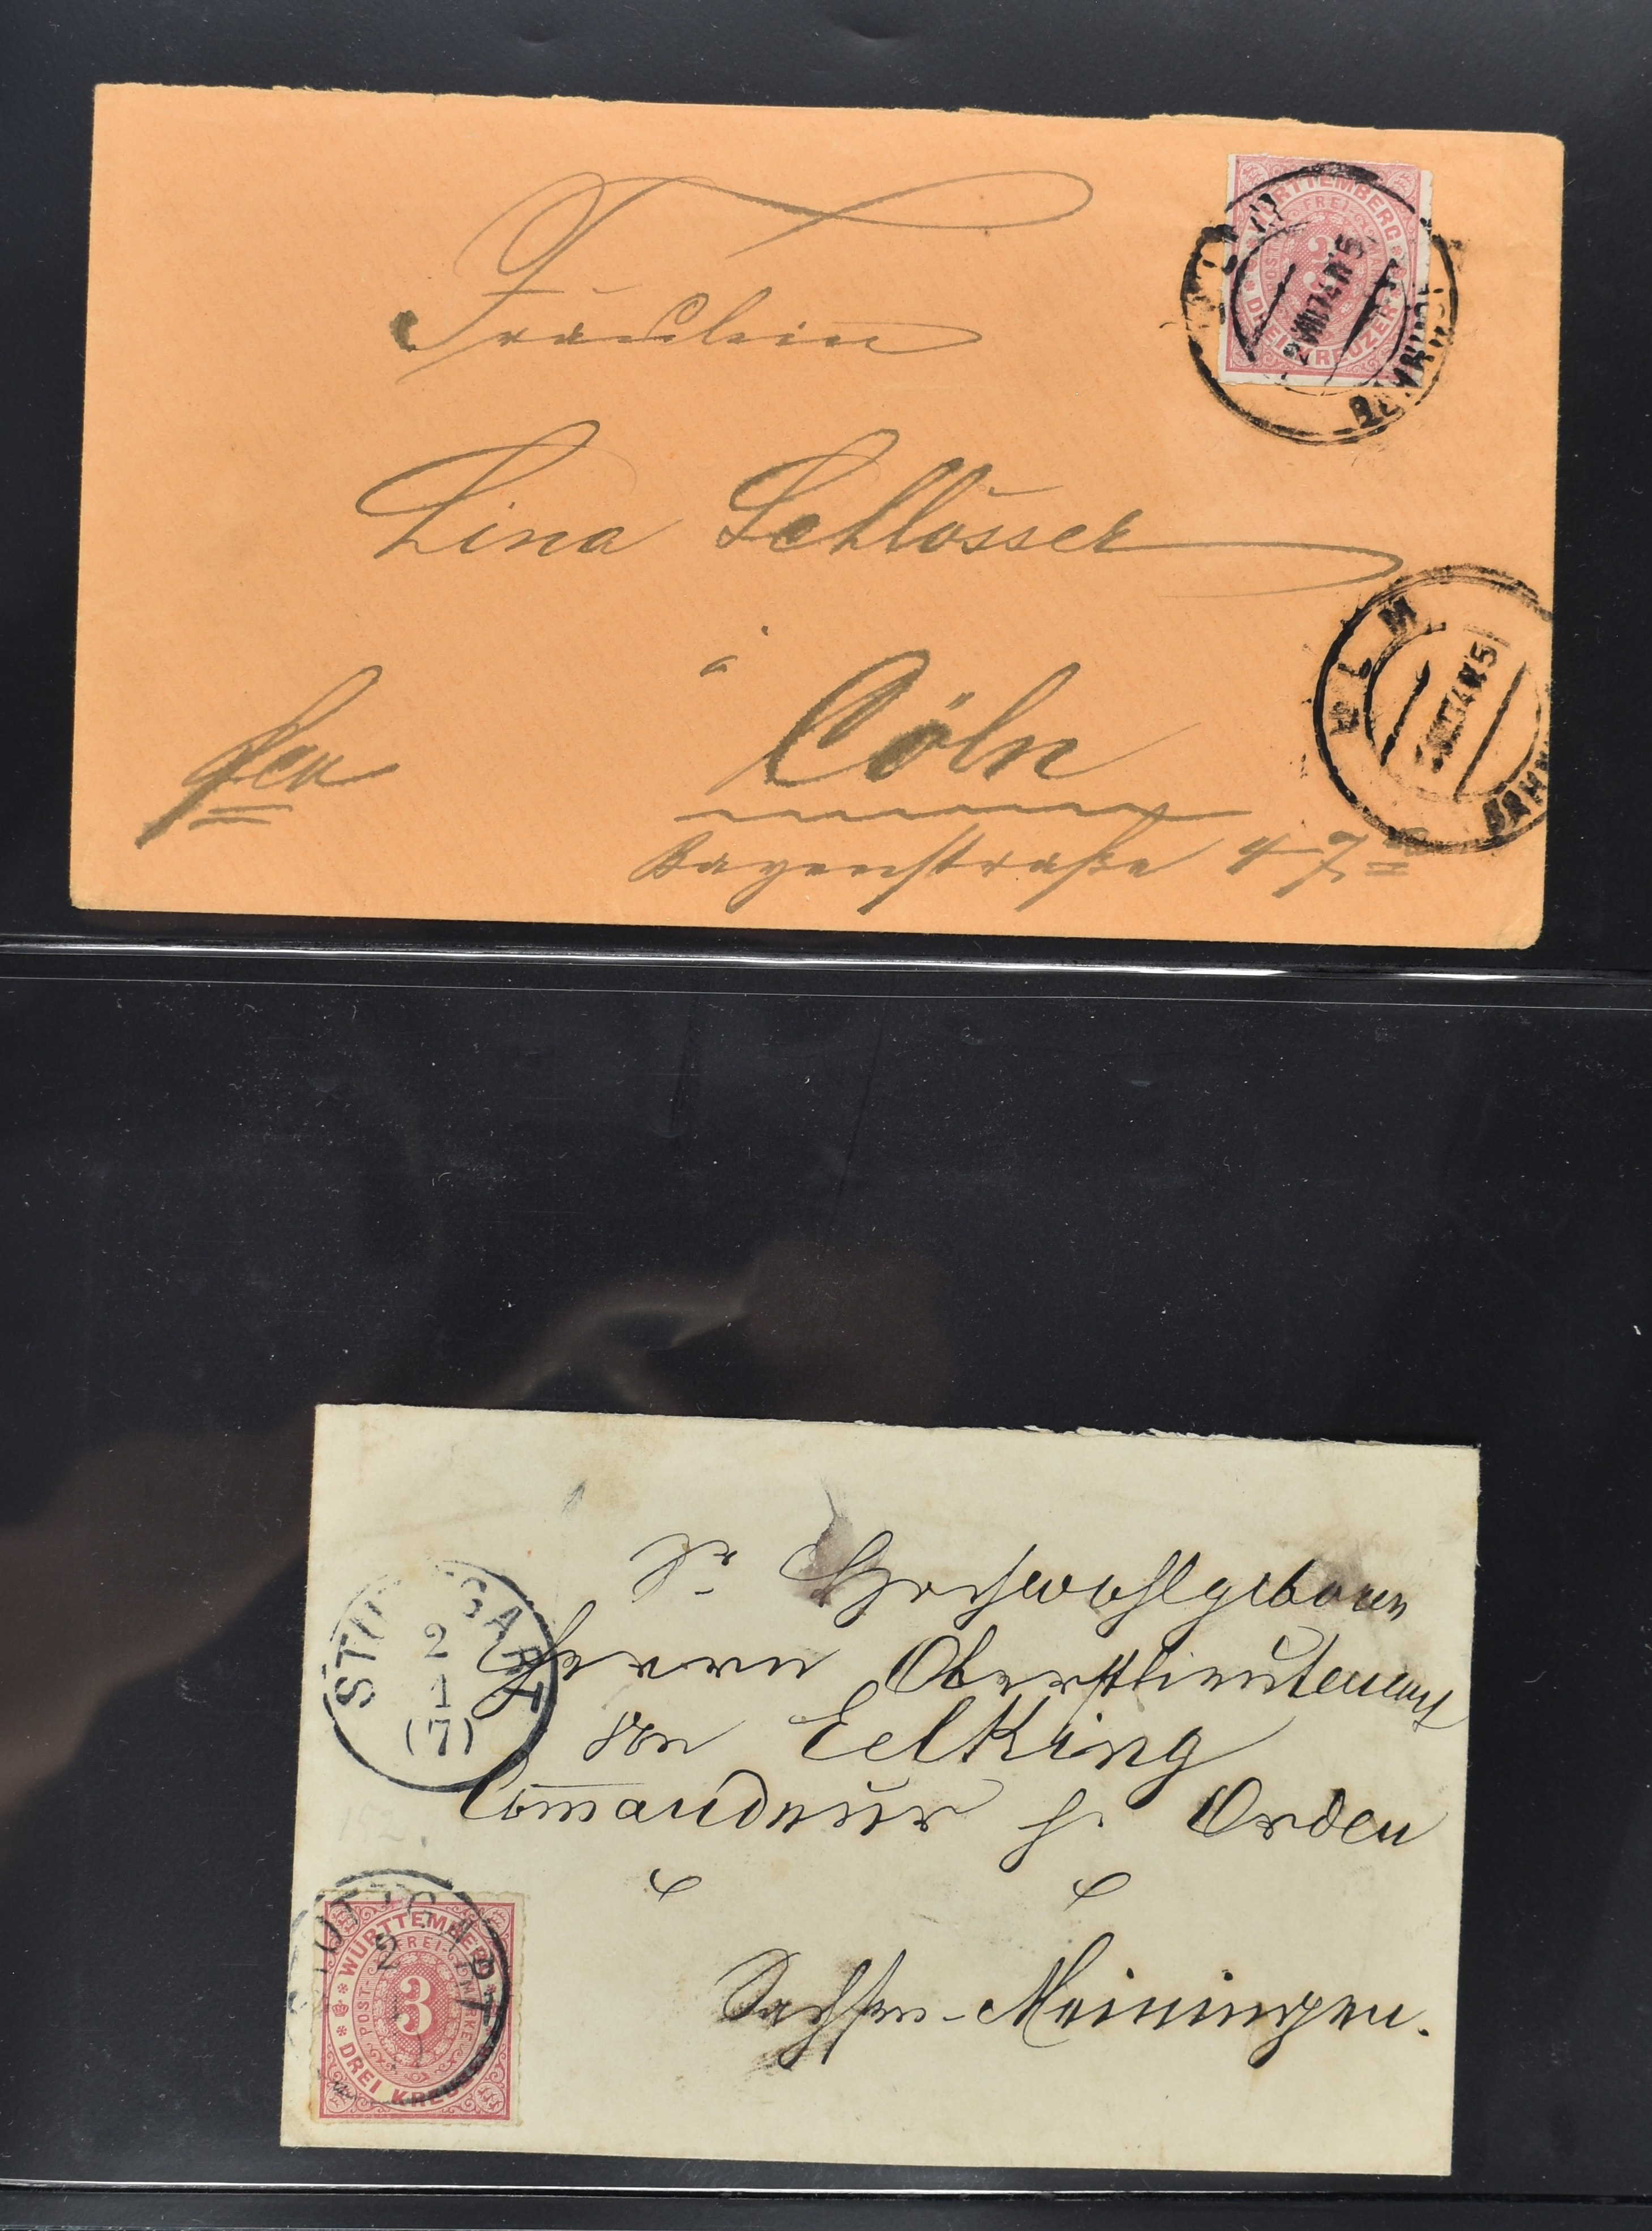 Fräulein
WÜRTTEMBERG
FREI-
POST
3
DREI KREUZER
Lina Schlösser
ULM
BAHNH
à Cöln
Bayenstraße 47
Sr Hochwohlgeboren
STUTTGART
2
1
(7)
Herrn Oberstlieutenant
von Eelking
Commandeur h. Orden
STUTTGART
2
WÜRTTEMBERG
FREI-
POST-
MARKE
3
DREI KREUZER
Sachsen-Meiningen.